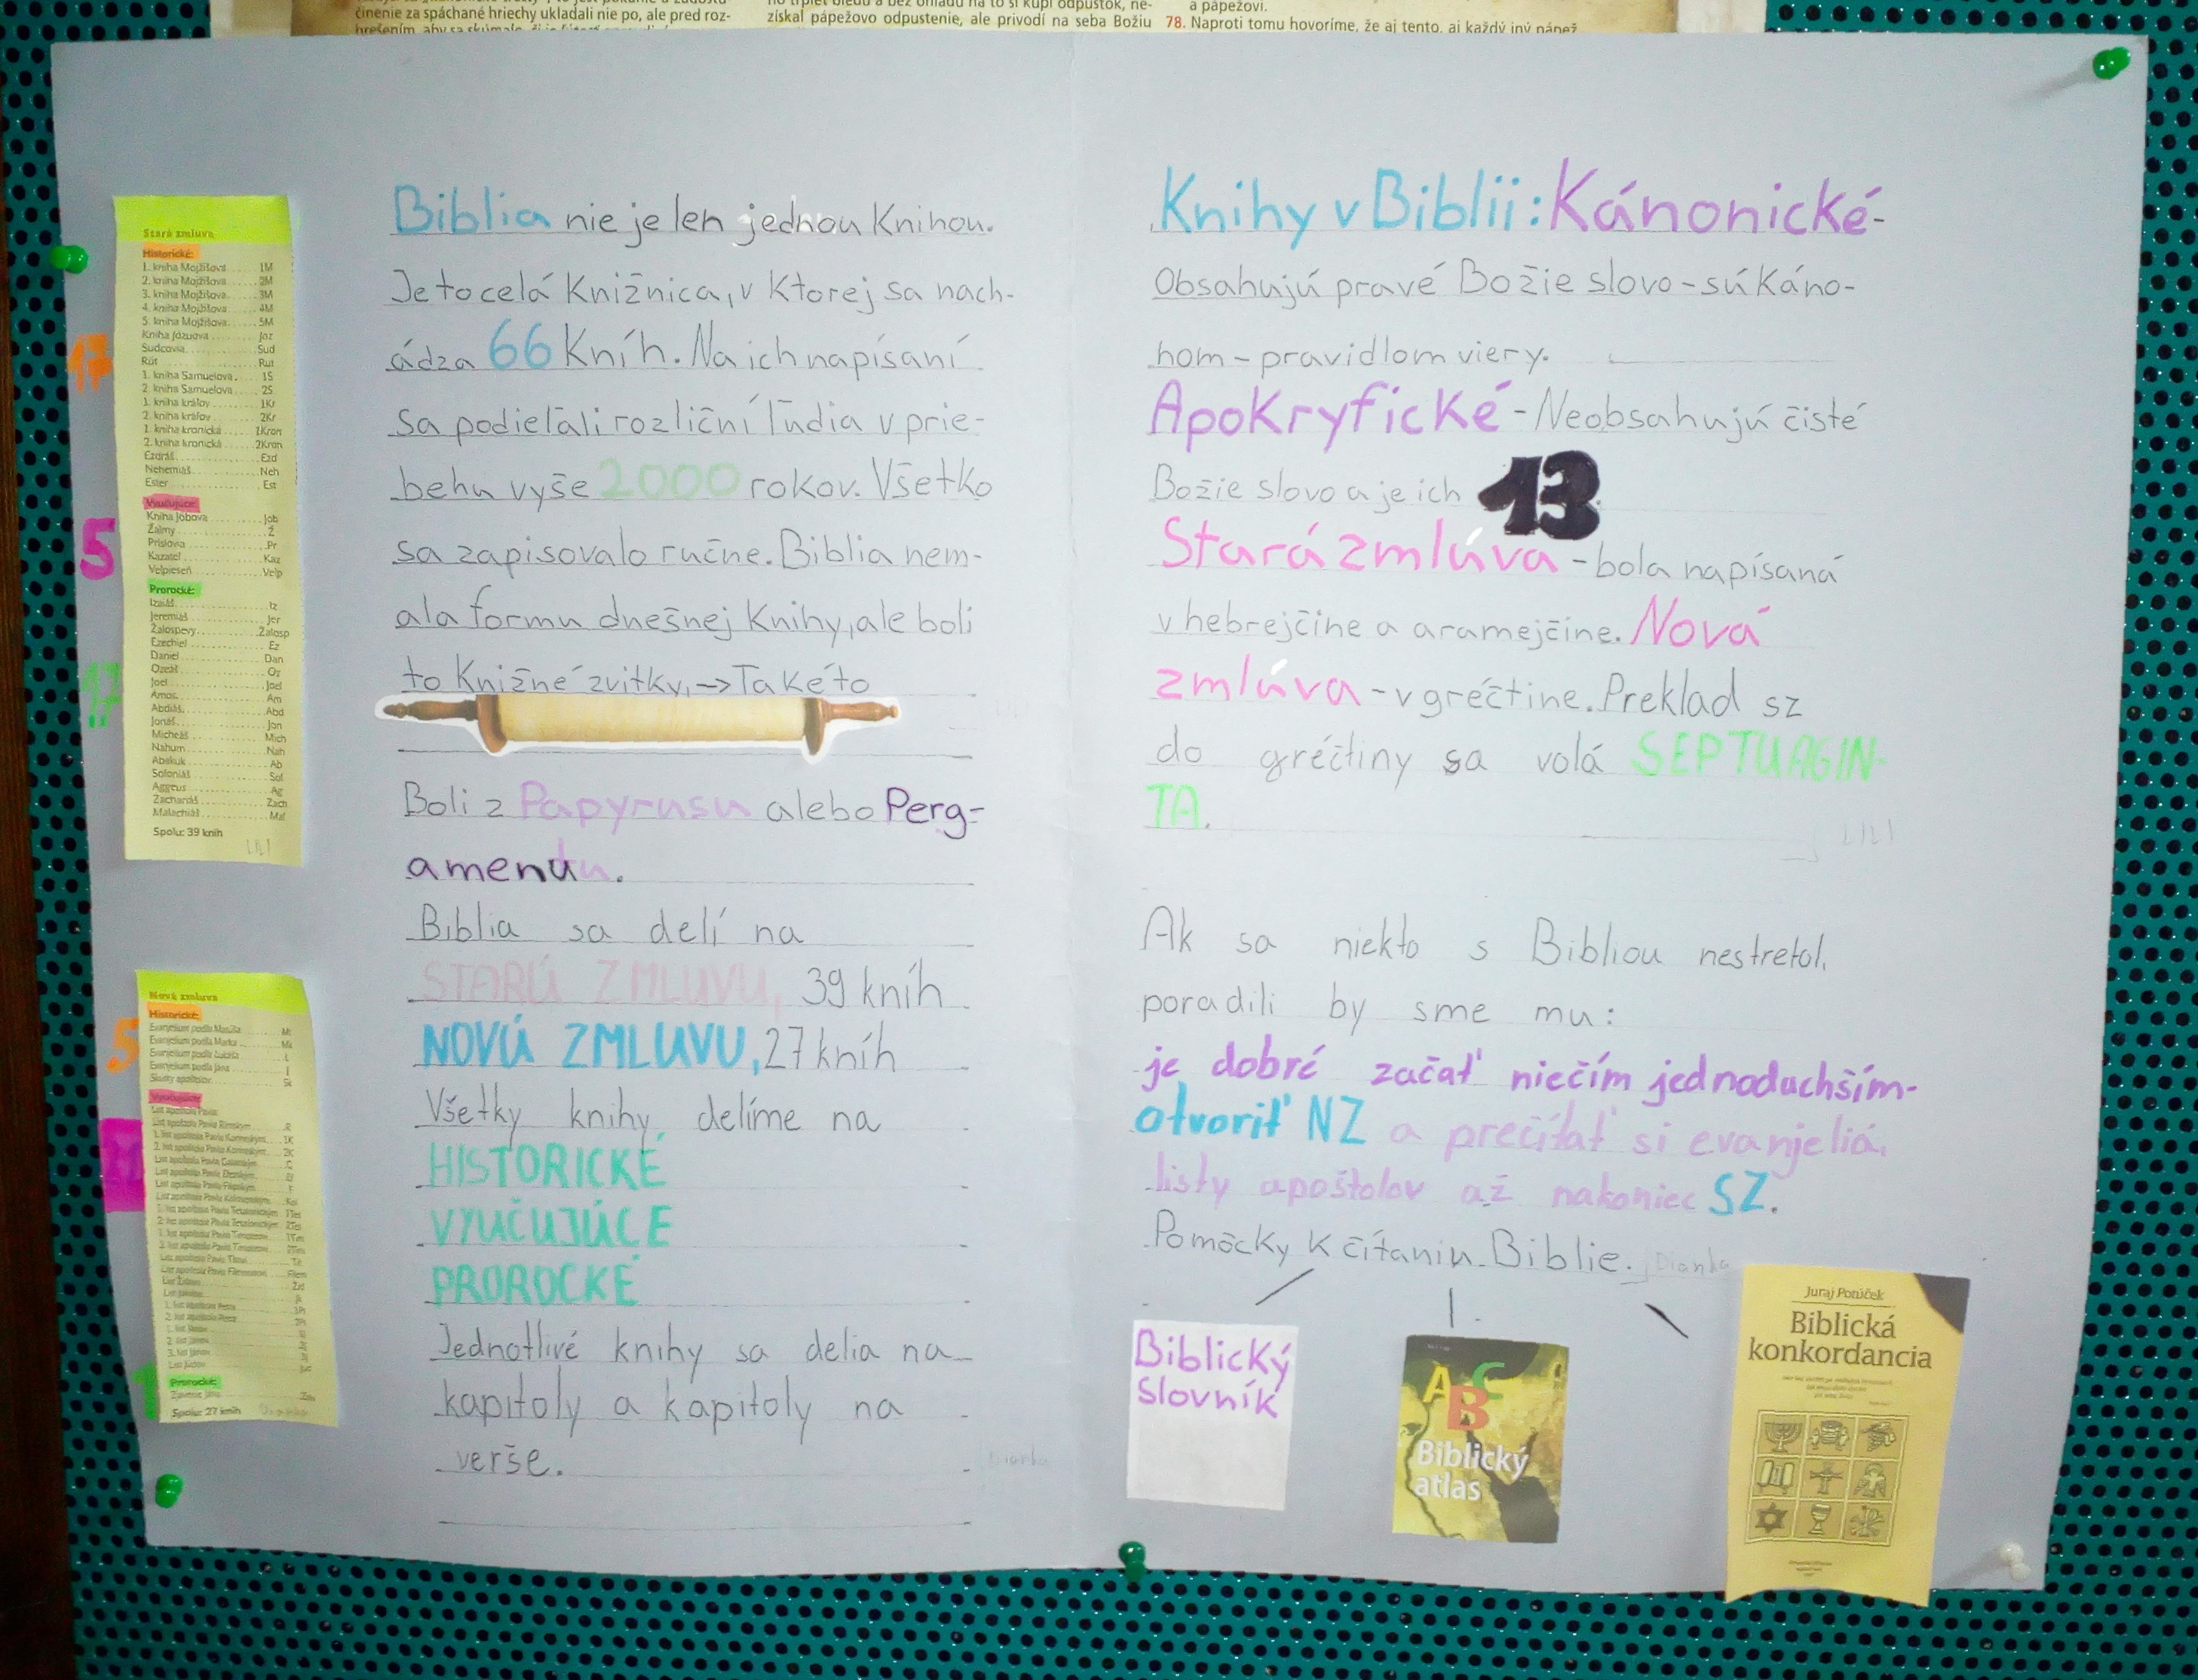 činenie za spáchané hriechy ukladali nie po, ale pred roz-
získal pápežovo odpustenie, ale privodí na seba Božiu
a pápežovi.
78. Naproti tomu hovoríme, že aj tento, aj každý iný pápež
Stará zmluva
Historické:
1. kniha Mojžišova 1M
2. kniha Mojžišova 2M
3. kniha Mojžišova 3M
4. kniha Mojžišova 4M
5. kniha Mojžišova 5M
Kniha Jozuova Joz
17
Sudcovia Sud
Rút Rut
1. kniha Samuelova 1S
2. kniha Samuelova 2S
1. kniha kráľov 1Kr
2. kniha kráľov 2Kr
1. kniha kronická 1Kron
2. kniha kronická 2Kron
Ezdráš Ezd
Nehemiáš Neh
Ester Est
Vyučujúce:
5
Kniha Jóbova Job
Žalmy Ž
Príslovia Pr
Kazateľ Kaz
Veľpieseň Veľp
Prorocké:
Izaiáš Iz
Jeremiáš Jer
Žalospevy Žalosp
Ezechiel Ez
Daniel Dan
17
Ozeáš Oz
Joel Joel
Amos Am
Abdiáš Abd
Jonáš Jon
Micheáš Mich
Nahum Nah
Abakuk Ab
Sofoniáš Sof
Aggeus Ag
Zachariáš Zach
Malachiáš Mal
Spolu: 39 kníh
Nová zmluva
Historické:
Evanjelium podľa Matúša Mt
Evanjelium podľa Marka Mk
5
Evanjelium podľa Lukáša L
Evanjelium podľa Jána J
Skutky apoštolov Sk
Vyučujúce:
Prorocké:
1
Zjavenie Jána
Spolu: 27 kníh
Biblia nie je len jednou Knihou.
Je to celá Knižnica, v Ktorej sa nach-
ádza 66 Kníh. Na ich napísaní
sa podieľali rozliční ľudia v prie-
behu vyše 2000 rokov. Všetko
sa zapisovalo ručne. Biblia nem-
ala formu dnešnej Knihy, ale boli
to Knižné zvitky, -> Takéto
Boli z Papyrusu alebo Perg-
amenu.
Biblia sa delí na
STARÚ ZMLUVU, 39 kníh
NOVÚ ZMLUVU, 27 kníh
Všetky knihy delíme na
HISTORICKÉ
VYUČUJÚCE
PROROCKÉ
Jednotlivé knihy sa delia na
kapitoly a kapitoly na
verše.
Dianka
Knihy v Biblii: Kánonické-
Obsahujú pravé Božie slovo - sú Káno-
nom - pravidlom viery.
Apokryfické - Neobsahujú čisté
Božie slovo a je ich 13.
Stará zmlúva - bola napísaná
v hebrejčine a aramejčine. Nová
zmlúva - v gréčtine. Preklad sz
do gréčtiny sa volá SEPTUAGIN-
TA.
Ak sa niekto s Bibliou nestretol,
poradili by sme mu:
je dobré začať niečím jednoduchším-
otvoriť NZ a prečítať si evanjeliá,
listy apoštolov až nakoniec SZ.
Pomôcky K čítaniu Biblie.
Dianka
Biblický
slovník
ABC
Biblický
atlas
Juraj Poniček
Biblická
konkordancia